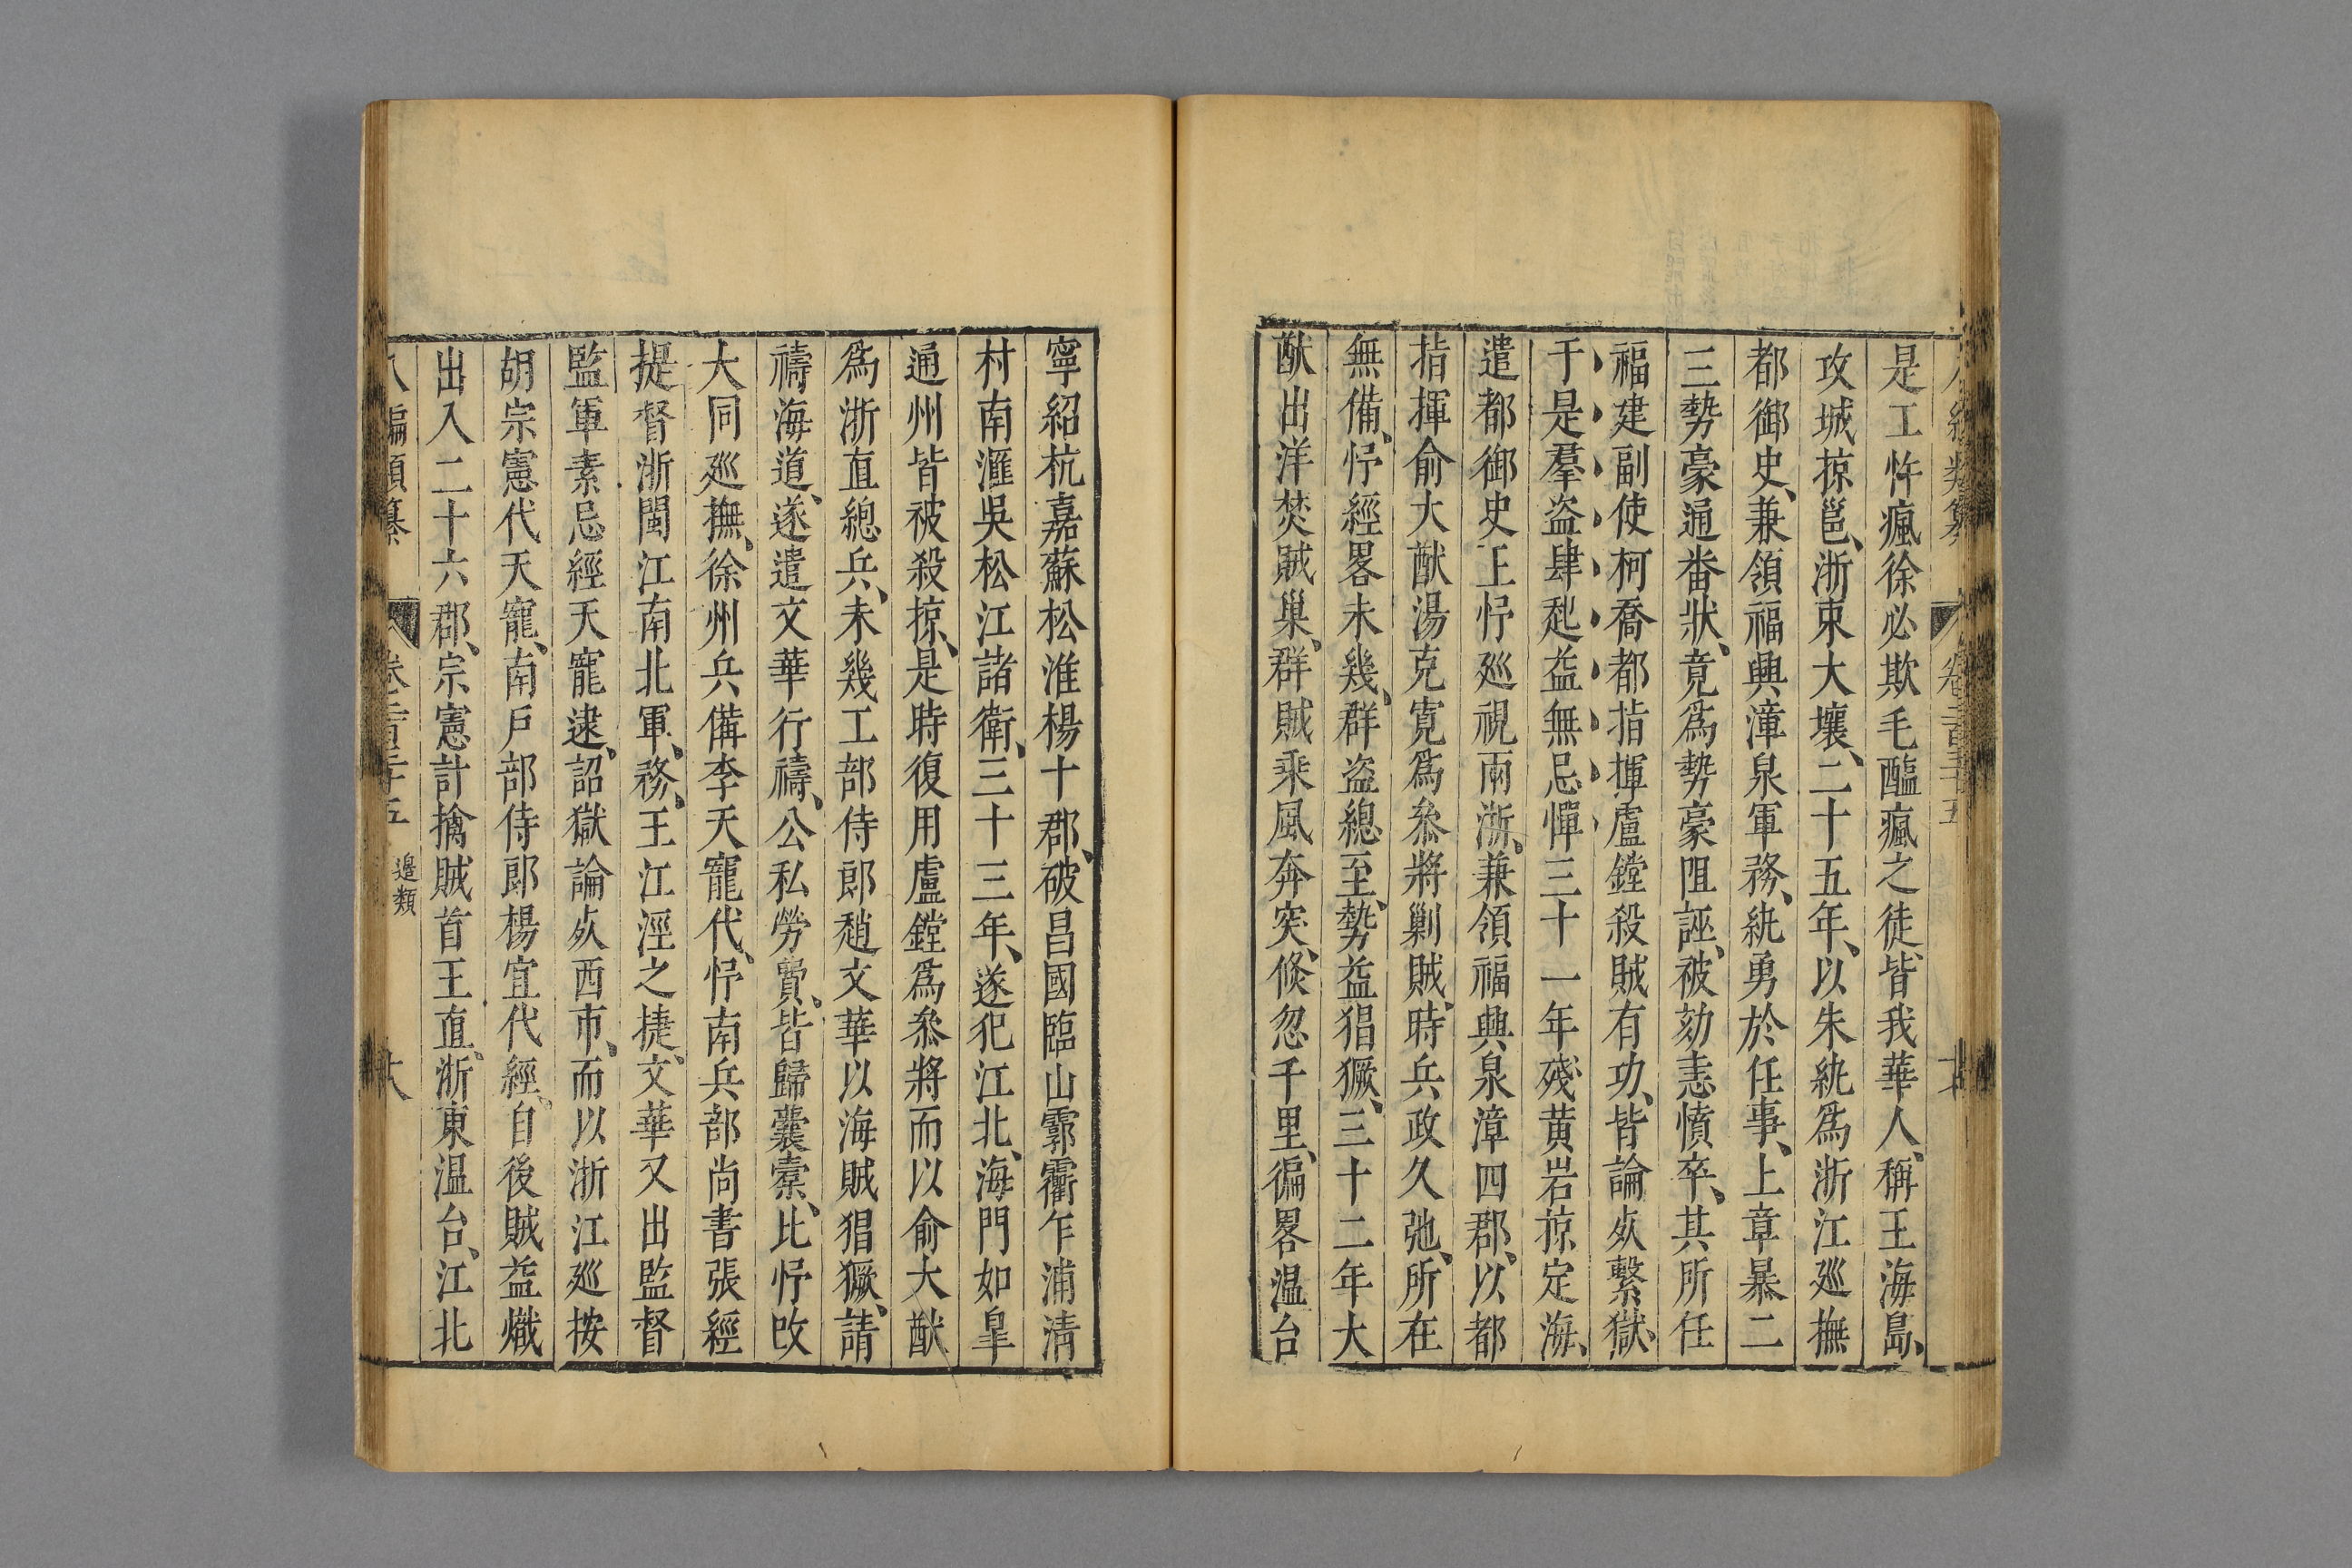 是工忤瘋徐必欺毛醢瘋之徒、皆我華人、稱王海島、
攻城掠邑、浙東大壤、二十五年、以朱紈爲浙江廵撫
都御史、兼領福興漳泉軍務、紈勇於任事、上章暴二
三勢豪通番狀、竟爲勢豪阻誣、被劾恚憤卒、其所任
福建副使柯喬都指揮盧鏜殺賊有功、皆論死繫獄、
于是羣盗肆起益無忌憚三十一年殘黄岩掠定海、
遣都御史王忬廵視兩浙、兼領福興泉漳四郡、以都
指揮俞大猷湯克寛爲叅將剿賊、時兵政久弛、所在
無備、忬經畧未幾、群盗總至、勢益猖獗、三十二年大
猷出洋焚賊巢、群賊乘風奔突、倏忽千里、徧畧温台
寧紹杭嘉蘇松淮楊十郡、破昌國臨山霩衢乍浦清
村南滙吳松江諸衛、三十三年、遂犯江北、海門如皐
通州皆被殺掠、是時復用盧鏜爲叅將而以俞大猷
爲浙直總兵、未幾工部侍郎趙文華以海賊猖獗、請
禱海道、遂遣文華行禱、公私勞費、皆歸囊橐、比忬改
大同廵撫、徐州兵備李天寵代、忬南兵部尚書張經
提督浙閩江南北軍、務、王江涇之捷、文華又出監督
監軍素忌經天寵逮、詔獄論死西市、而以浙江廵按
胡宗憲代天寵、南戶部侍郎楊宜代經、自後賊益熾
出入二十六郡、宗憲計擒賊首王直、浙東温台、江北
八編類纂 卷二百三十五 邊類 十八